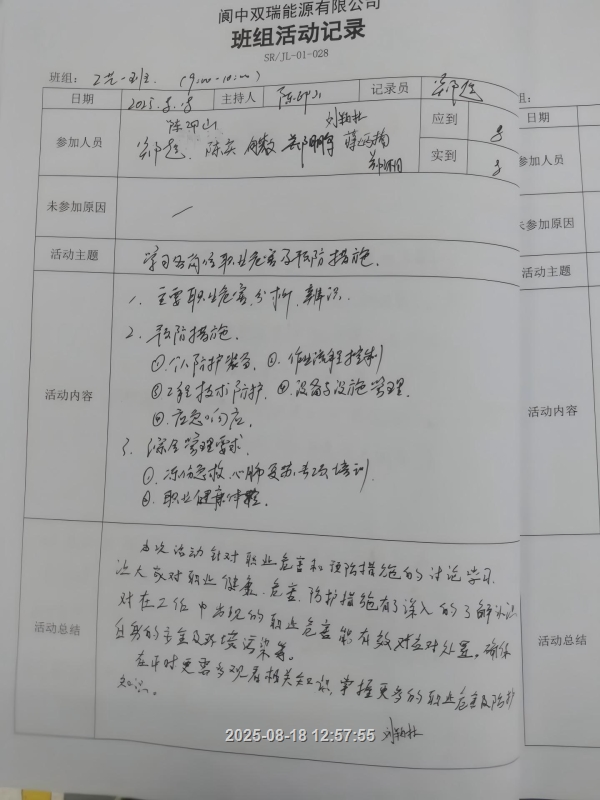 阆中双瑞能源有限公司
班组活动记录
SR/JL-01-028
班组： 工艺一班 (9:00-10:00)
日期 2025.8.18 主持人 记录员
参加人员 应到
实到
未参加原因 /
活动主题 学习各岗位职业危害及预防措施.
活动内容
1. 主要职业危害分析、辨识.
2. 预防措施.
①个人防护装备. ②. 作业流程控制
③工程技术防护. ④.设备与设施管理.
应急响应.
3. 综合管理要求.
①. 冻伤急救、心肺复苏专项培训.
②. 职业健康体检.
活动总结
本次活动针对职业危害和预防措施的讨论学习.
让大家对职业健康、危害、防护措施有了深入的了解认识
对在工作中出现的职业危害能有效对应对处置。确保
自身的安全及环境污染等。
在平时更要多观看相关知识,掌握更多的职业危害及防护
知识。
2025-08-18 12:57:55
组：
日期
参加人员
未参加原因
活动主题
活动内容
活动总结